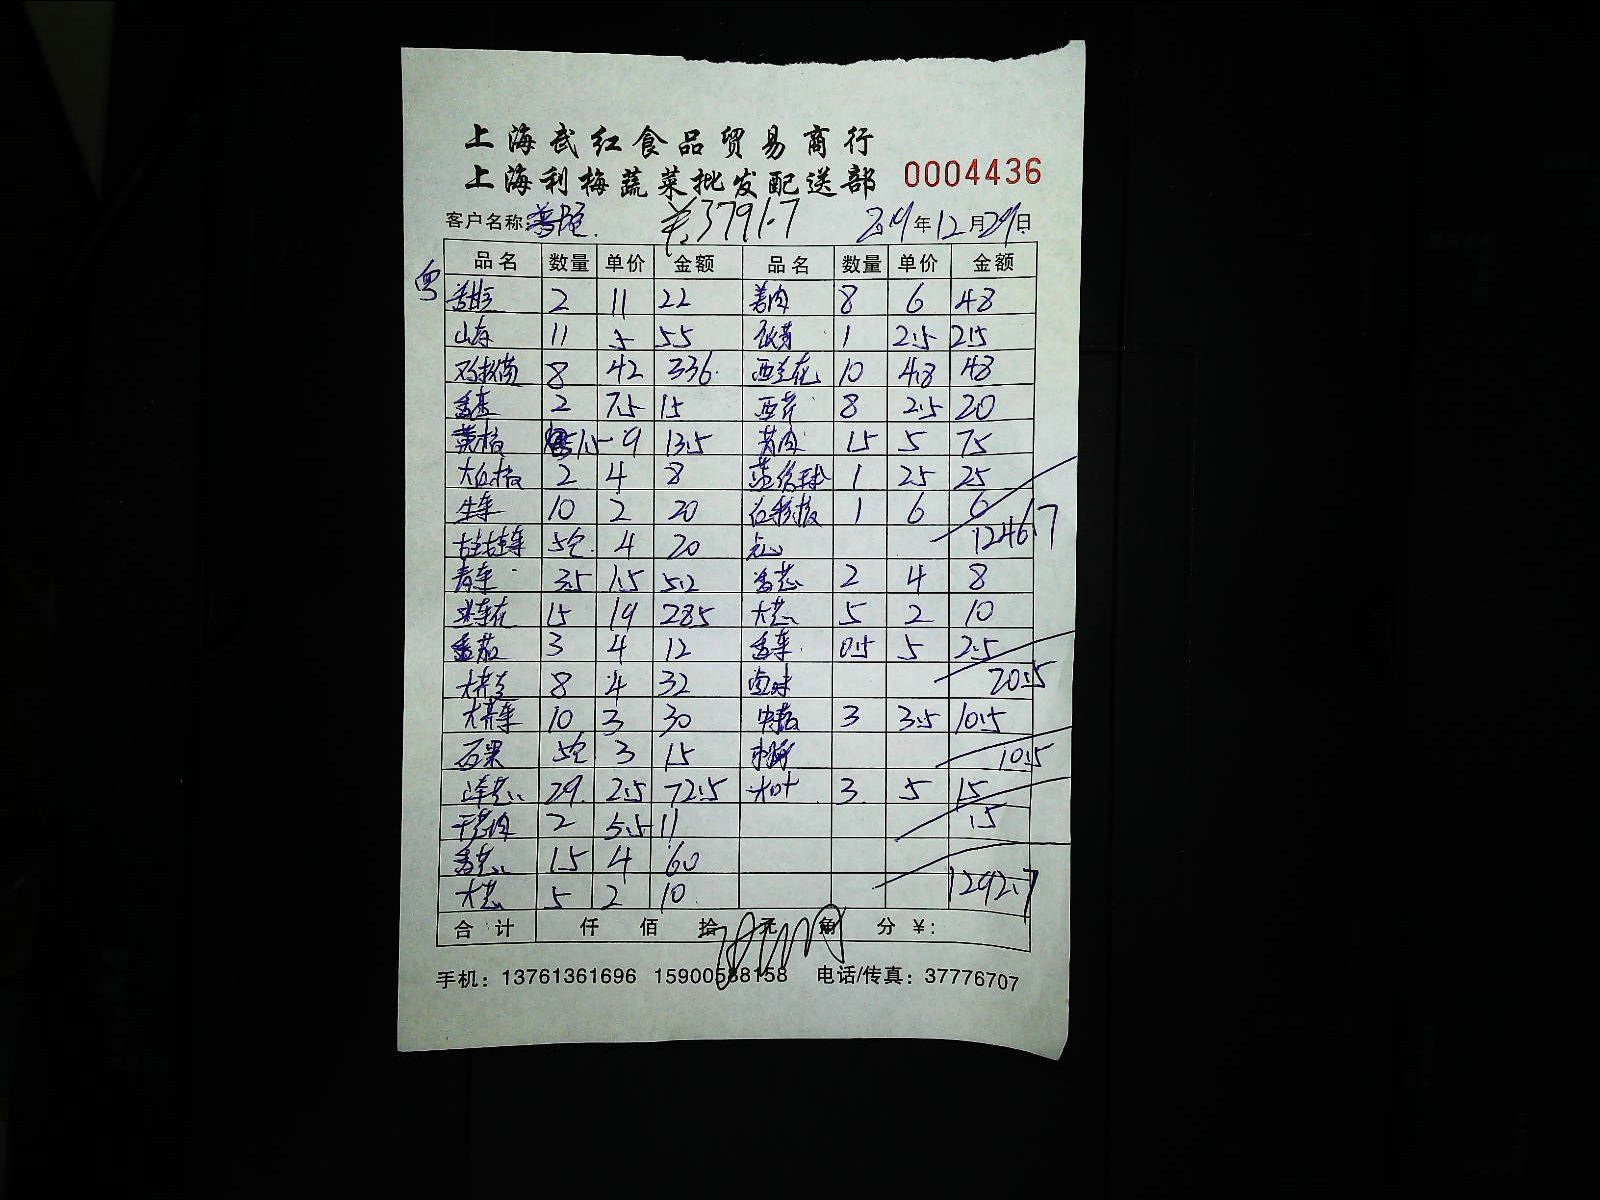 上海武红食品贸易商行
上海利梅蔬菜批发配送部 0004436
客户名称: ¥3791.7 2019年12月29日
品名 数量 单价 金额 品名 数量 单价 金额
2 11 22 姜肉 8 6 48
山药 11 5 55 1 25 25
8 42 336 西兰花 10 4.8 48
香菜 2 7.5 15 西芹 8 2.5 20
黄椒 1.5 9 13.5 15 5 75
大红椒 2 4 8 1 25 25
生菜 10 2 20 1 6 6
5包 4 20 点心 1246.7
青菜 3.5 1.5 5.2 香葱 2 4 8
15 19 285 大葱 5 2 10
番茄 3 4 12 香菜 0.5 5 2.5
8 4 32 卤味 20.5
10 3 30 3 3.5 10.5
5包 3 15 10.5
29 2.5 72.5 3 5 15
2 5.5 11 15
香葱 15 4 60
大葱 5 2 10 1292.7
合计 仟 佰 拾 元 角 分 ¥:
手机: 13761361696 15900588158 电话/传真: 37776707